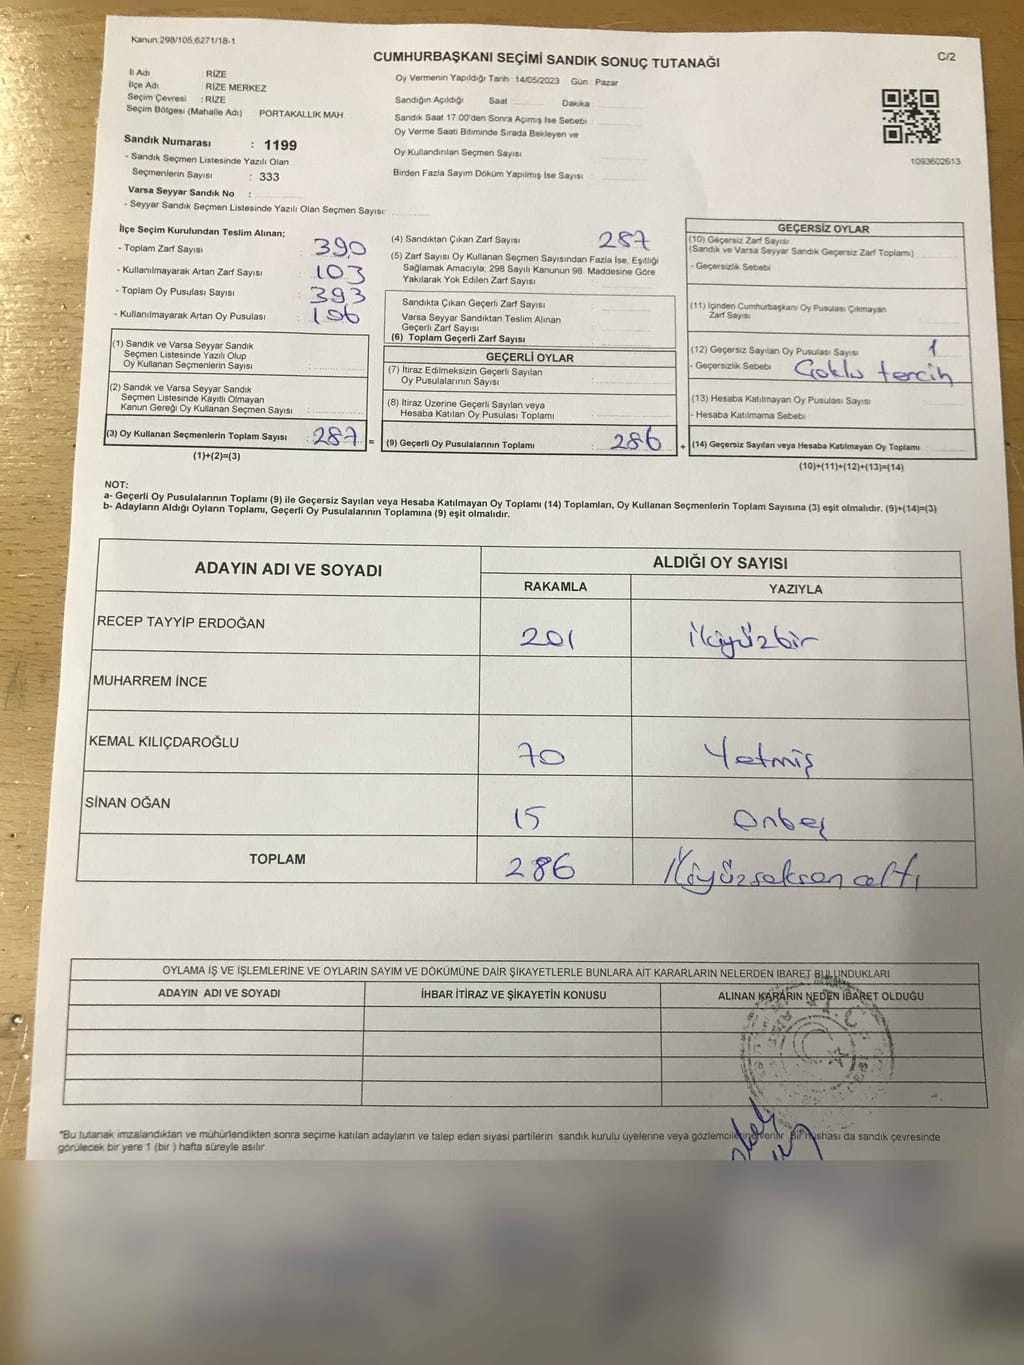 Kanun:298/105;6271/18-1
C/2
CUMHURBAŞKANI SEÇİMİ SANDIK SONUÇ TUTANAĞI
İl Adı RİZE
İlçe Adı RİZE MERKEZ
Seçim Çevresi : RİZE
Seçim Bölgesi (Mahalle Adı) PORTAKALLIK MAH.
Oy Vermenin Yapıldığı Tarih :14/05/2023 Gün : Pazar
Sandığın Açıldığı Saat Dakika
Sandık Saat 17:00'den Sonra Açımış İse Sebebi :
Oy Verme Saati Bitiminde Sırada Bekleyen ve
Oy Kullandırılan Seçmen Sayısı
Birden Fazla Sayım Döküm Yapılmış İse Sayısı :
1093602613
Sandık Numarası : 1199
- Sandık Seçmen Listesinde Yazılı Olan
Seçmenlerin Sayısı : 333
Varsa Seyyar Sandık No :
- Seyyar Sandık Seçmen Listesinde Yazılı Olan Seçmen Sayısı:
İlçe Seçim Kurulundan Teslim Alınan;
- Toplam Zarf Sayısı : 390
- Kullanılmayarak Artan Zarf Sayısı : 103
- Toplam Oy Pusulası Sayısı : 393
- Kullanılmayarak Artan Oy Pusulası : 106
(1) Sandık ve Varsa Seyyar Sandık
Seçmen Listesinde Yazılı Olup
Oy Kullanan Seçmenlerin Sayısı :
(2) Sandık ve Varsa Seyyar Sandık
Seçmen Listesinde Kayıtlı Olmayan
Kanun Gereği Oy Kullanan Seçmen Sayısı :
(3) Oy Kullanan Seçmenlerin Toplam Sayısı : 287 =
(1)+(2)=(3)
(4) Sandıktan Çıkan Zarf Sayısı : 287
(5) Zarf Sayısı Oy Kullanan Seçmen Sayısından Fazla İse, Eşitliği
Sağlamak Amacıyla; 298 Sayılı Kanunun 98. Maddesine Göre
Yakılarak Yok Edilen Zarf Sayısı
Sandıkta Çıkan Geçerli Zarf Sayısı
Varsa Seyyar Sandıktan Teslim Alınan
Geçerli Zarf Sayısı
(6) Toplam Geçerli Zarf Sayısı
GEÇERLİ OYLAR
(7) İtiraz Edilmeksizin Geçerli Sayılan
Oy Pusulalarının Sayısı
(8) İtiraz Üzerine Geçerli Sayılan veya
Hesaba Katılan Oy Pusulası Toplamı
(9) Geçerli Oy Pusulalarının Toplamı : 286 +
GEÇERSİZ OYLAR
(10) Geçersiz Zarf Sayısı
(Sandık ve Varsa Seyyar Sandık Geçersiz Zarf Toplamı)
- Geçersizlik Sebebi
(11) İçinden Cumhurbaşkanı Oy Pusulası Çıkmayan
Zarf Sayısı
(12) Geçersiz Sayılan Oy Pusulası Sayısı 1
- Geçersizlik Sebebi Çoklu tercih
(13) Hesaba Katılmayan Oy Pusulası Sayısı
- Hesaba Katılmama Sebebi
(14) Geçersiz Sayılan veya Hesaba Katılmayan Oy Toplamı
(10)+(11)+(12)+(13)=(14)
NOT:
a- Geçerli Oy Pusulalarının Toplamı (9) ile Geçersiz Sayılan veya Hesaba Katılmayan Oy Toplamı (14) Toplamları, Oy Kullanan Seçmenlerin Toplam Sayısına (3) eşit olmalıdır. (9)+(14)=(3)
b- Adayların Aldığı Oyların Toplamı, Geçerli Oy Pusulalarının Toplamına (9) eşit olmalıdır.
ADAYIN ADI VE SOYADI
ALDIĞI OY SAYISI
RAKAMLA YAZIYLA
RECEP TAYYİP ERDOĞAN 201 ikiyüzbir
MUHARREM İNCE
KEMAL KILIÇDAROĞLU 70 Yetmiş
SİNAN OĞAN 15 Onbeş
TOPLAM 286 İkiyüzseksen altı
OYLAMA İŞ VE İŞLEMLERİNE VE OYLARIN SAYIM VE DÖKÜMÜNE DAİR ŞİKAYETLERLE BUNLARA AİT KARARLARIN NELERDEN İBARET BULUNDUKLARI
ADAYIN ADI VE SOYADI İHBAR İTİRAZ VE ŞİKAYETİN KONUSU ALINAN KARARIN NEDEN İBARET OLDUĞU
*Bu tutanak imzalandıktan ve mühürlendikten sonra seçime katılan adayların ve talep eden siyasi partilerin sandık kurulu üyelerine veya gözlemcilerine verilir. Bir nüshası da sandık çevresinde
görülecek bir yere 1 (bir ) hafta süreyle asılır